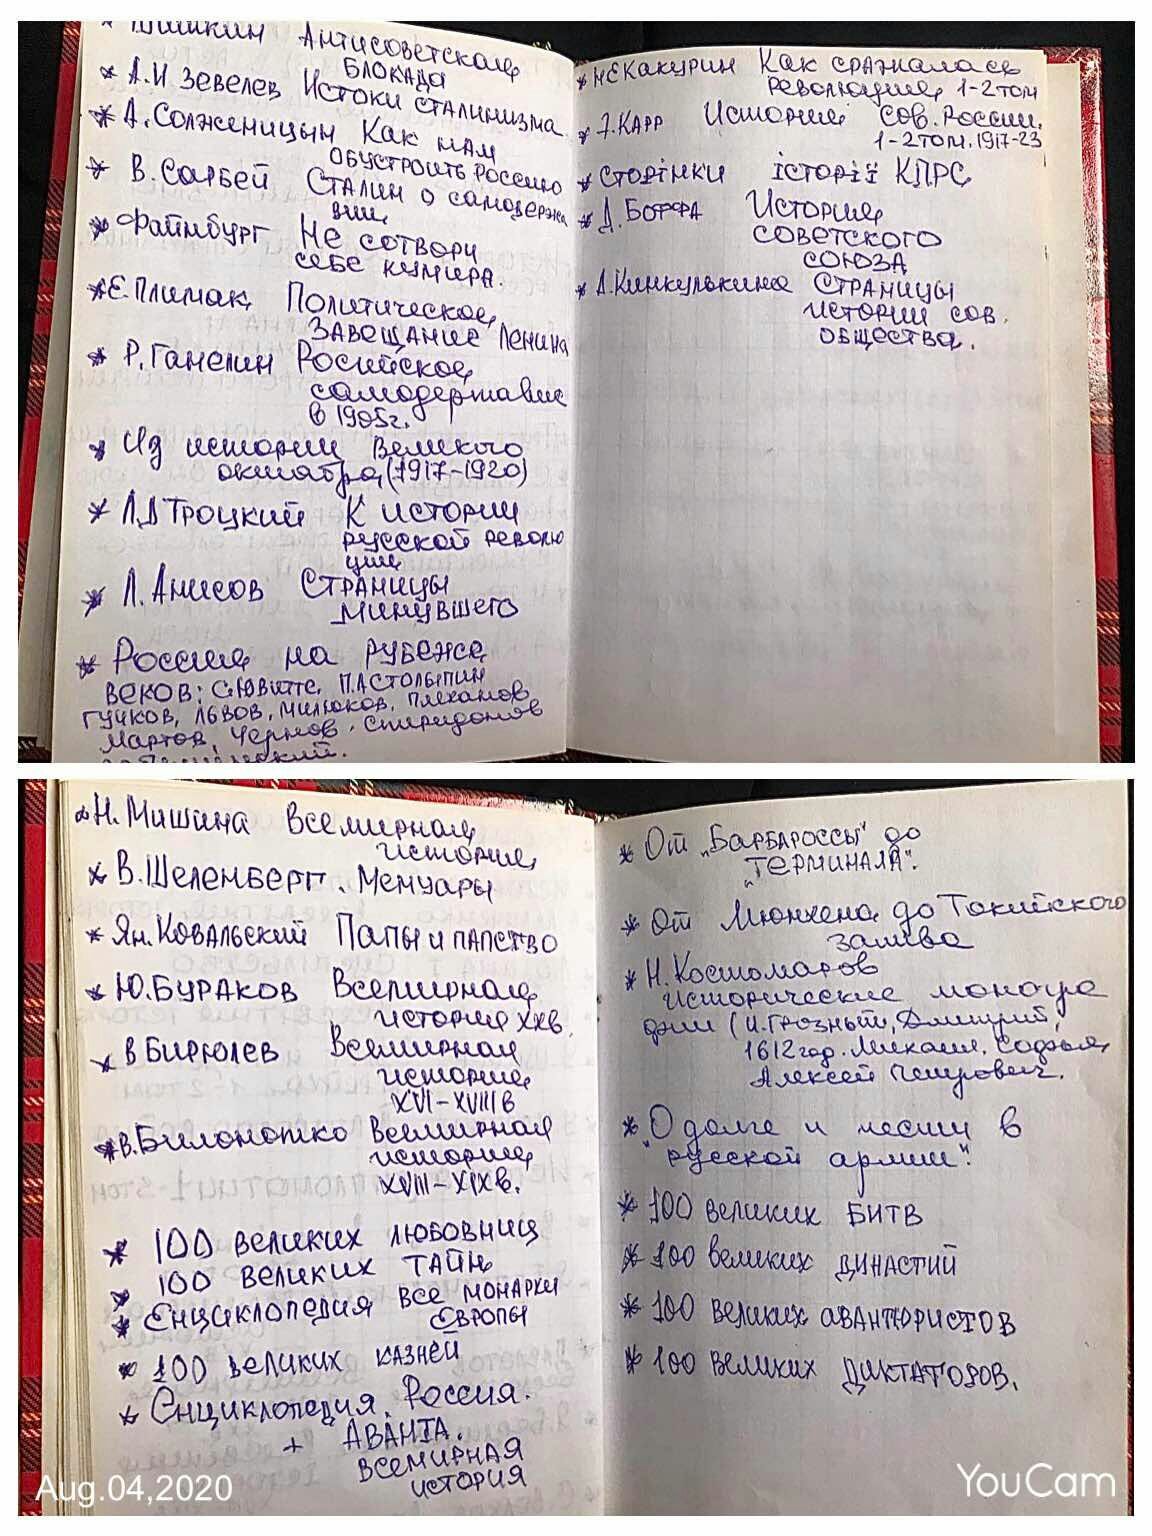 * Шишкин Антисоветская
блокада
* А.И. Зевелев Истоки сталинизма
* А. Солженицын Как нам
обустроить Россию
* В. Сарбей Сталин о самодержа
вии
* Файнбург Не сотвори
себе кумира.
* Е. Плимак Политическое
завещание Ленина
* Р. Ганелин Росийское
самодержавие
в 1905г.
* Из истории Великого
октября (1917-1920)
* Л.Д Троцкий К истории
русской револю
ции
* Л. Анисов Страницы
минувшего
* Россия на рубеже
веков: С.Ю Витте, П.А Столыпин
Гучков, Львов, Милюков, Плеханов
Мартов, Чернов. Спиридонов
* Н Е Какурин Как сражалась
революция 1-2 том
* Э. Карр История сов. России.
1-2 том. 1917-23
* Сторінки історії КПРС
* Д. Боффа История
советского
союза
* А. Кинкулькина Страницы
истории сов.
общества.
* Н. Мишина Всемирная
история
* В. Шеленберг. Мемуары
* Ян. Ковальский Папы и папство
* Ю. Бураков Всемирная
история XXв.
* В Бирюлев Всемирная
история
XVI-XVIII в
* В. Билоножко Всемирная
история
XVIII-XIXв.
* 100 великих любовниц
* 100 великих тайн
* Енциклопедия все монархи
Европы
* 100 великих казней
* Енциклопедия. Россия.
+ Аванта.
Всемирная
история
* От „Барбароссы" до
„Терминала".
* От Мюнхена до Токийского
залива
* Н. Костомаров
исторические моногра
фии (И. Грозный, Дмитрий,
1612 год. Михаил, Софья,
Алексей Петрович.
* "О долге и чести в
русской армии".
* 100 великих битв
* 100 великих династий
* 100 великих авантюристов
* 100 великих диктаторов.
Aug.04,2020
YouCam